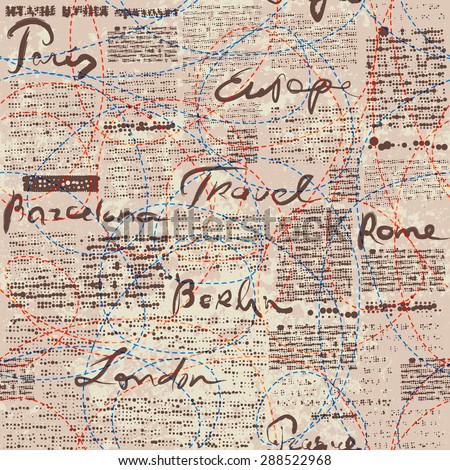 Paris
Europe
Travel
Barcelona
Rome
Berlin
London
Prague
shutterstock
IMAGE ID: 288522968
www.shutterstock.com